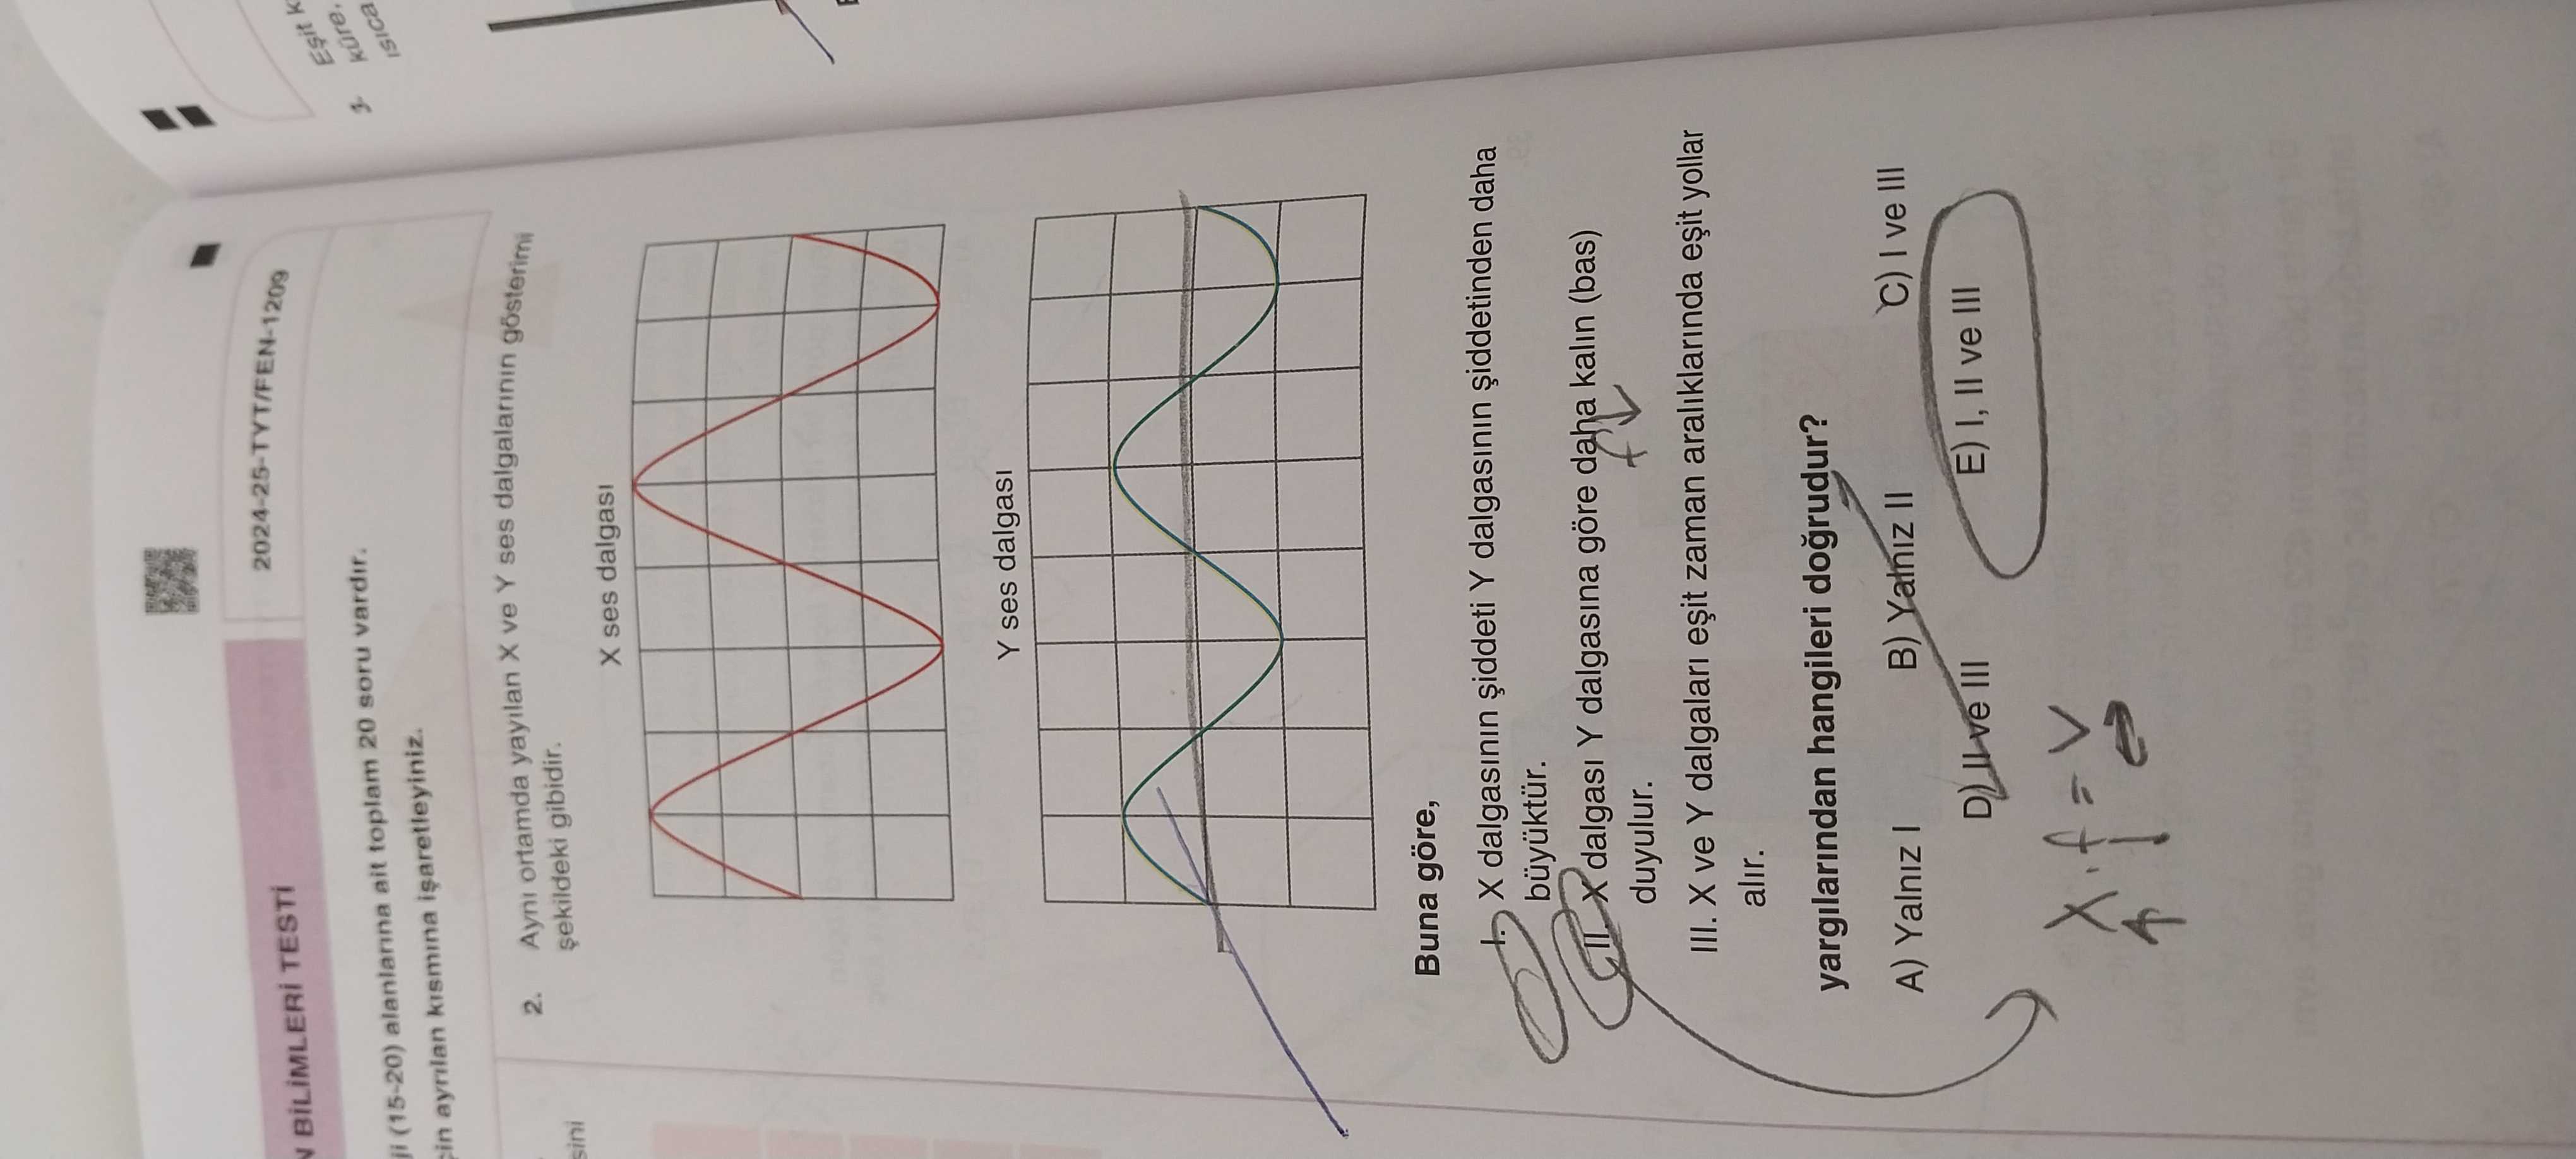 N BİLİMLERİ TESTİ
2024-25-TYT/FEN-1209
ji (15-20) alanlarına ait toplam 20 soru vardır.
çin ayrılan kısmına işaretleyiniz.
sini
2. Aynı ortamda yayılan X ve Y ses dalgalarının gösterimi
şekildeki gibidir.
X ses dalgası
Y ses dalgası
Buna göre,
I. X dalgasının şiddeti Y dalgasının şiddetinden daha
büyüktür.
II. X dalgası Y dalgasına göre daha kalın (bas)
duyulur.
f↓
III. X ve Y dalgaları eşit zaman aralıklarında eşit yollar
alır.
yargılarından hangileri doğrudur?
A) Yalnız I B) Yalnız II C) I ve III
D) II ve III E) I, II ve III
Eşit k
küre,
ısıca